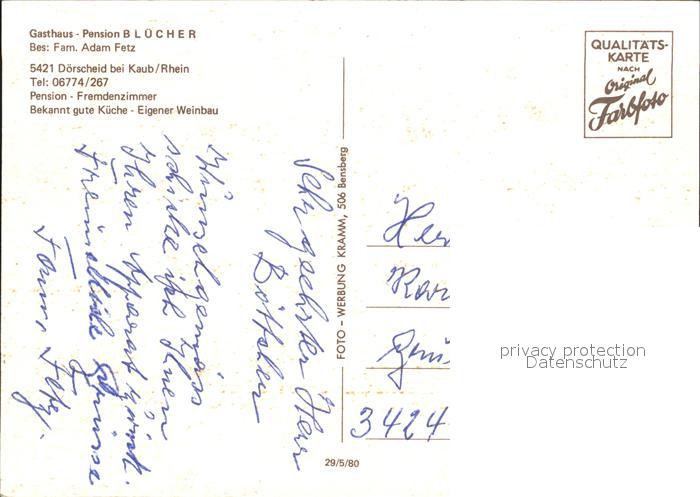 Gasthaus - Pension BLÜCHER
Bes: Fam. Adam Fetz
5421 Dörscheid bei Kaub/Rhein
Tel: 06774/267
Pension - Fremdenzimmer
Bekannt gute Küche - Eigener Weinbau
QUALITÄTS-
KARTE
NACH
Original
Farbfoto
FOTO – WERBUNG KRAMM, 506 Bensberg
Sehr geehrter Herr
Wunschgemäss
schicke ich Ihnen
Ihren Apparat zurück.
Freundliche Grüsse
Fam. Fetz.
Her
Kar
3424
29/5/80
privacy protection
Datenschutz